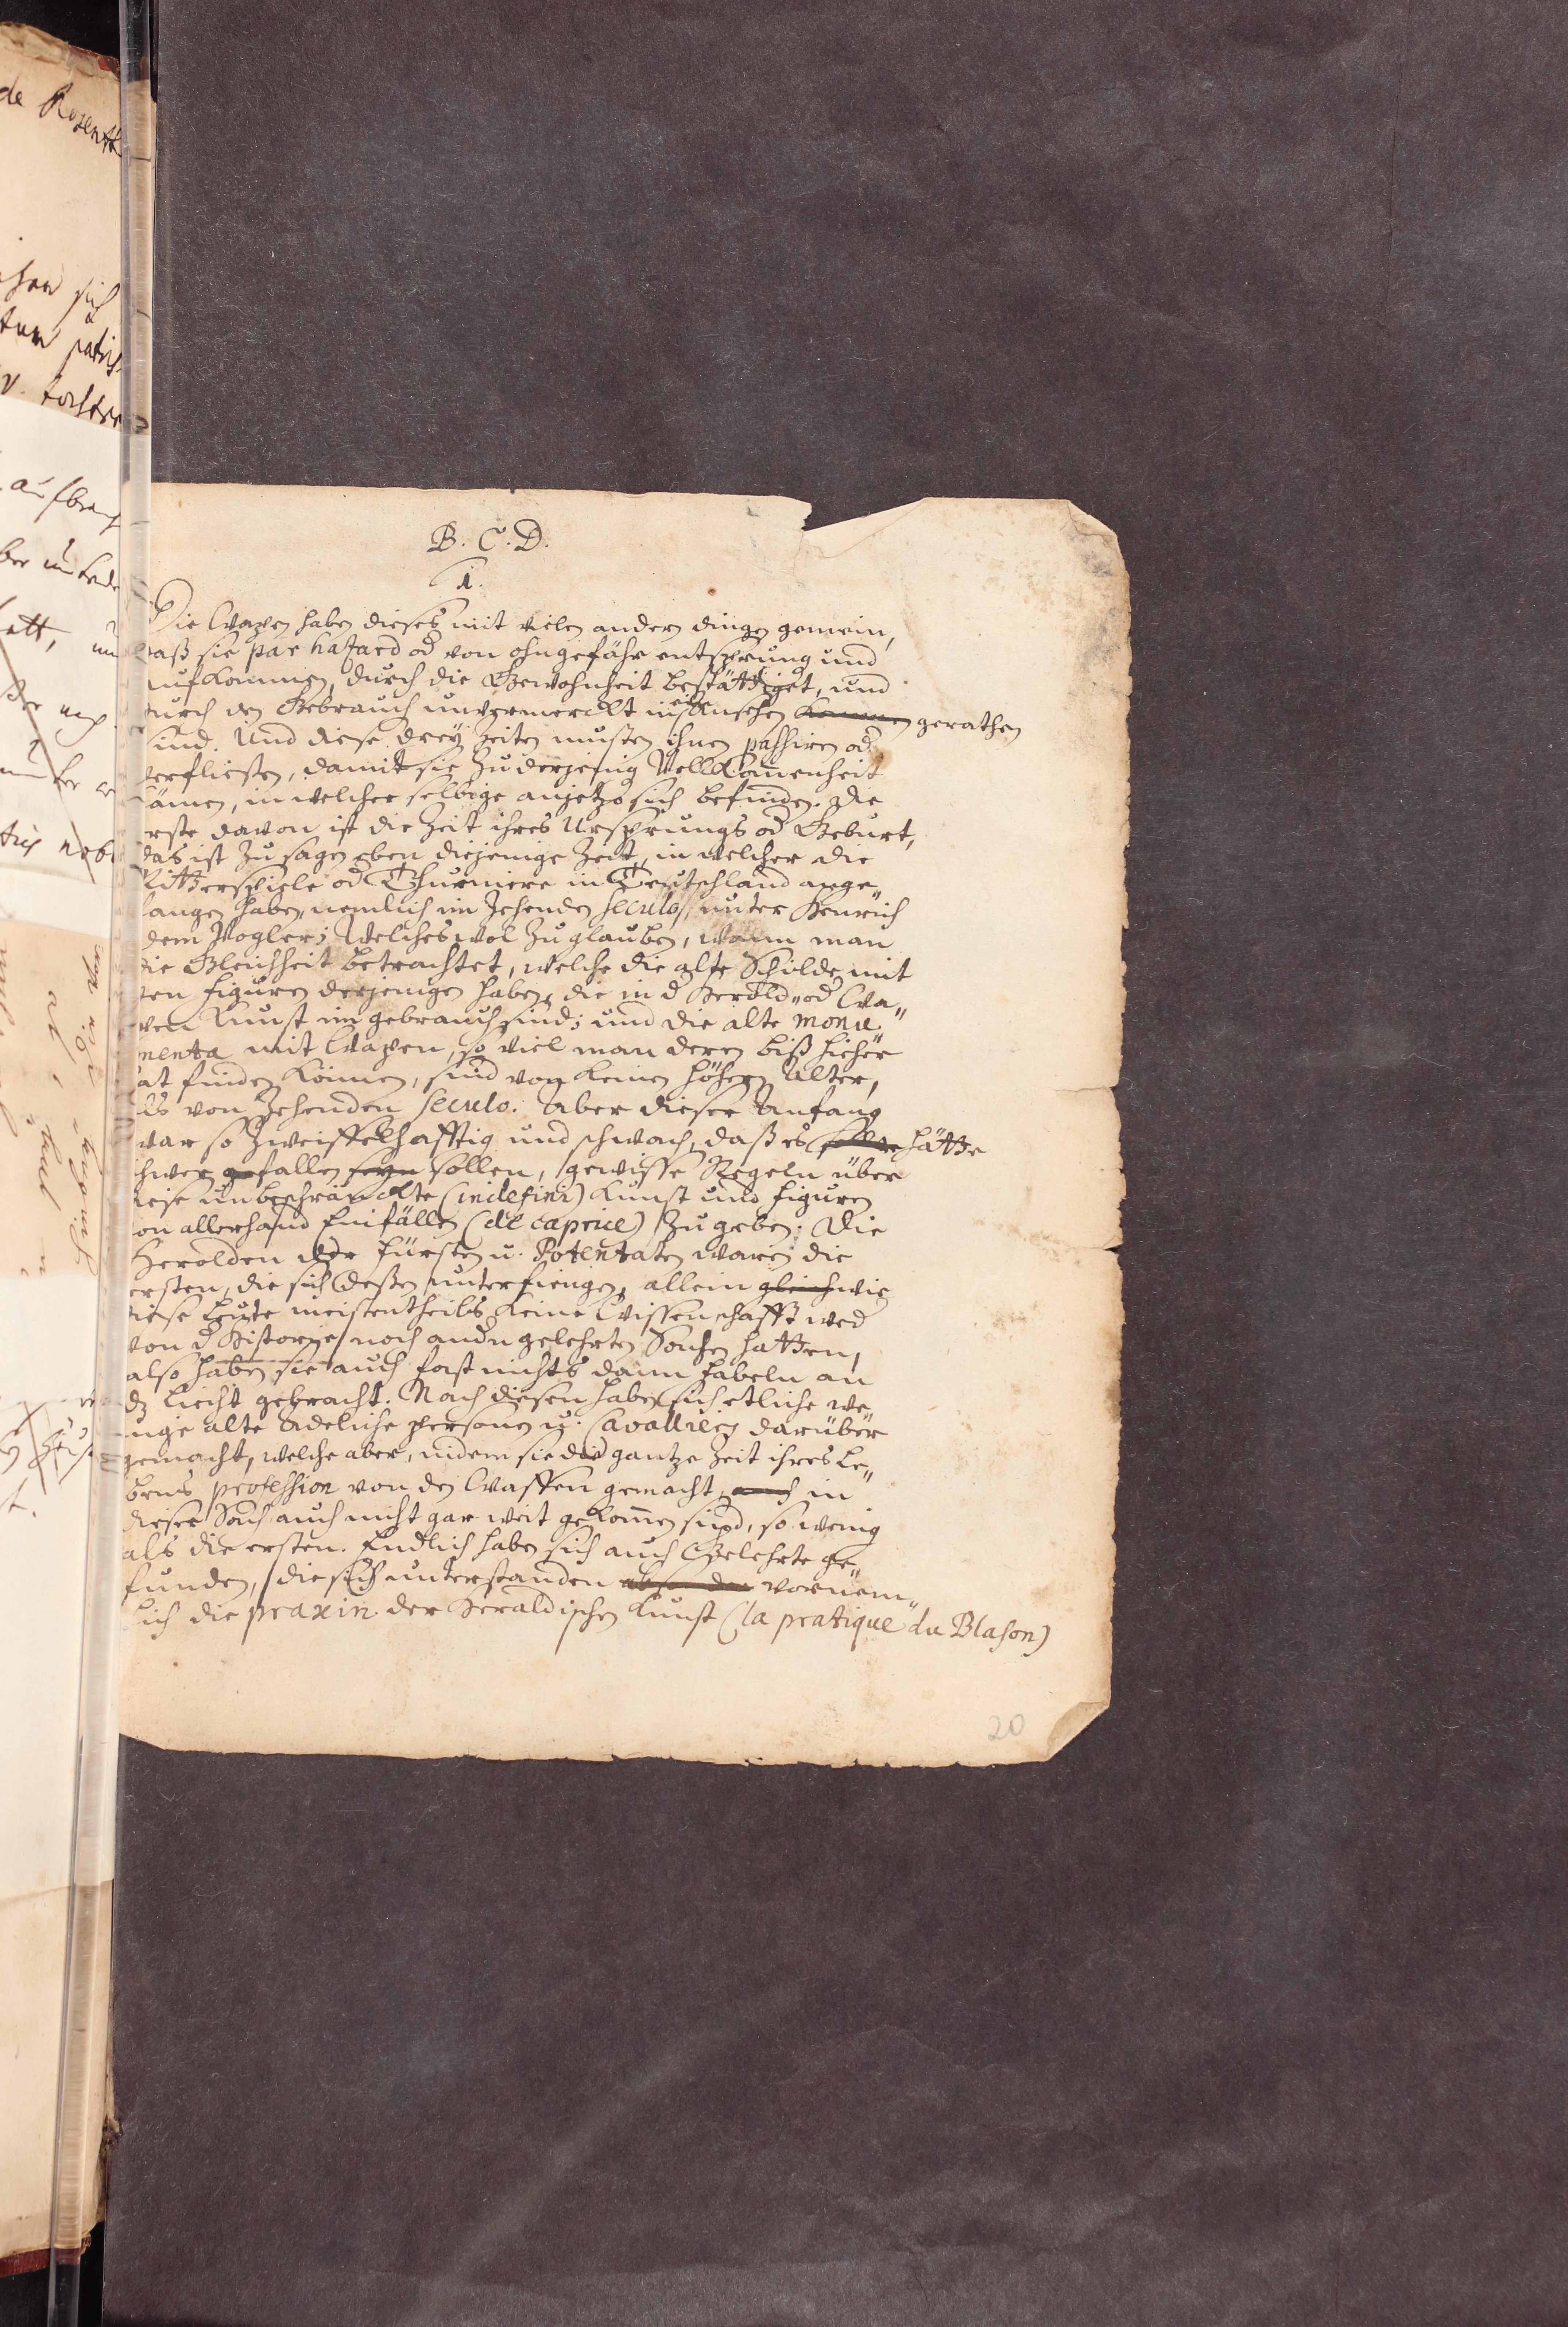 de Rosenth
B. C. D.
1.
Die Wapen haben dieses mit vielen andern dingen gemein,
daß sie par hazard od von ohngefähr entsprung und
aufkommen, durch die Gewohnheit bestättiget, und
durch den Gebrauch unvermerckt in ein Ansehen kommen gerathen
sind. Und diese drey Zeiten musten ihnen passiren od
verfliesten, damit sie zu derjenig Vollkom̄enheit
kämen, in welcher selbige anjetzo sich befinden. Die
erste davon ist die Zeit ihres Ursprungs od Geburt,
das ist zu sagen eben diejenige Zeit, in welcher die
Ritterspiele od Thurniere in Teutschland ange„
fangen haben, nemlich im Zehenden seculo, unter Henrich
dem Vogler; Welches wol zu glauben, wann man
die Gleichheit betrachtet, welche die alte Schilde mit
den figuren derjenigen haben, die in d Herold„ od Wa„
pen Kunst im gebrauch sind; und die alte monu„
menta mit Wapen, so viel man deren biß hieher
hat finden können, sind von keinen höhern Alter,
als von Zehenden seculo. Aber dieser Anfang
war so zweiffelhafftig und schwach, daß es hätte
schwer gefallen seyn sollen, gewisse Regeln über
diese unbeschränckte (indefini) Kunst und figuren
von allerhand Einfällen (de caprice) zu geben. Die
Herolden der Fürsten u. Potentaten waren die
ersten, die sich deßen unterfiengen, allein gleichwie
diese Leute meistentheils keine Wissenschafft wed
von d Historie noch andn gelehrten Sachen hatten,
also haben sie auch fast nichts dann fabeln an
dz Liecht gebracht. Nach diesen haben sich etliche we„
nige alte Adeliche personen u. Cavalliers darüber
gemacht, welche aber, indem sie die gantze Zeit ihres Le„
bens profession von den Waffen gemacht, auch in
dieser Sach auch nicht gar weit gekom̄en sind, so wenig
als die ersten. Endlich haben sich auch Gelehrte ge„
funden, die sich unterstanden vornem„
lich die praxin der Heraldischen Kunst (la pratique du Blason)
20